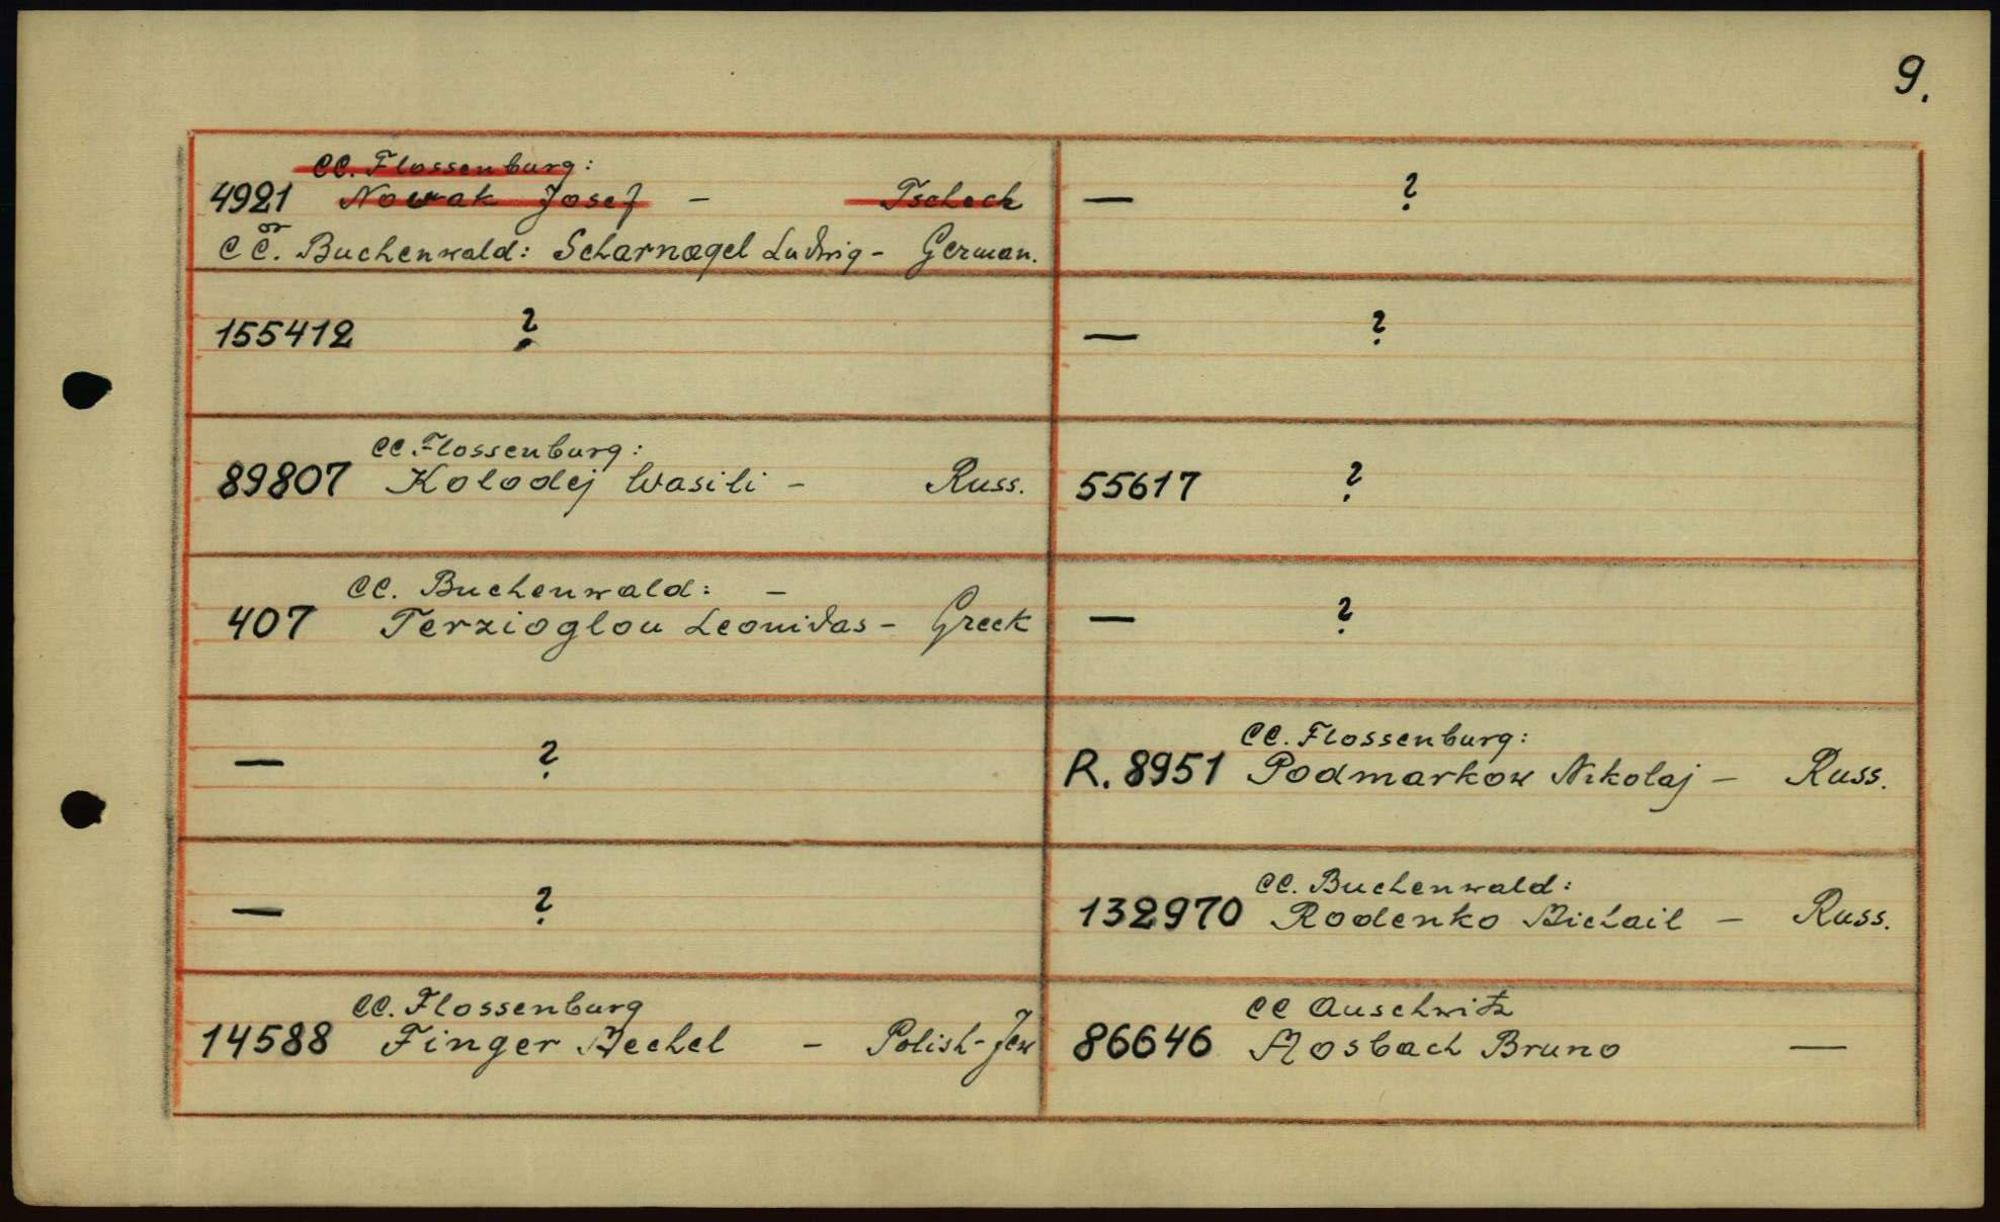 9.
CC. Flossenburg:
4921 Nowak Josef - Tschech
or
CC. Buchenwald: Scharnagel Ludwig - German.
— ?
155412 ?
— ?
CC. Flossenburg:
89807 Kolodej Wasili - Russ.
55617 ?
CC. Buchenwald: -
407 Terzioglou Leonidas - Greek
— ?
— ?
CC. Flossenburg:
R. 8951 Podmarkow Nikolaj - Russ.
— ?
CC. Buchenwald:
132970 Rodenko Michail - Russ.
CC. Flossenburg
14588 Finger Mechel - Polish-Jew
CC Auschwitz
86646 Mosbach Bruno —